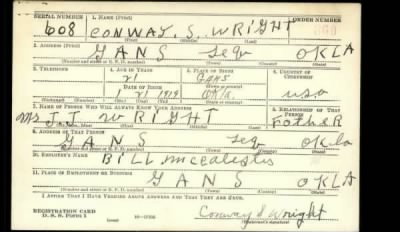 SERIAL NUMBER 1. NAME (Print) ORDER NUMBER
608 CONWAY. S. WRIGHT
2. ADDRESS (Print)
GANS Seq OKLA
3. TELEPHONE 4. AGE IN YEARS 5. PLACE OF BIRTH 6. COUNTRY OF CITIZENSHIP
21 GANS
DATE OF BIRTH
1919 OKLA. USA
7. NAME OF PERSON WHO WILL ALWAYS KNOW YOUR ADDRESS 8. RELATIONSHIP OF THAT PERSON
J.T. WRIGHT FATHER
9. ADDRESS OF THAT PERSON
GANS Seq Okla
10. EMPLOYER'S NAME
BILL
11. PLACE OF EMPLOYMENT OR BUSINESS
GANS OKLA
I AFFIRM THAT I HAVE VERIFIED ABOVE ANSWERS AND THAT THEY ARE TRUE.
REGISTRATION CARD
D. S. S. Form 1
Conway S Wright